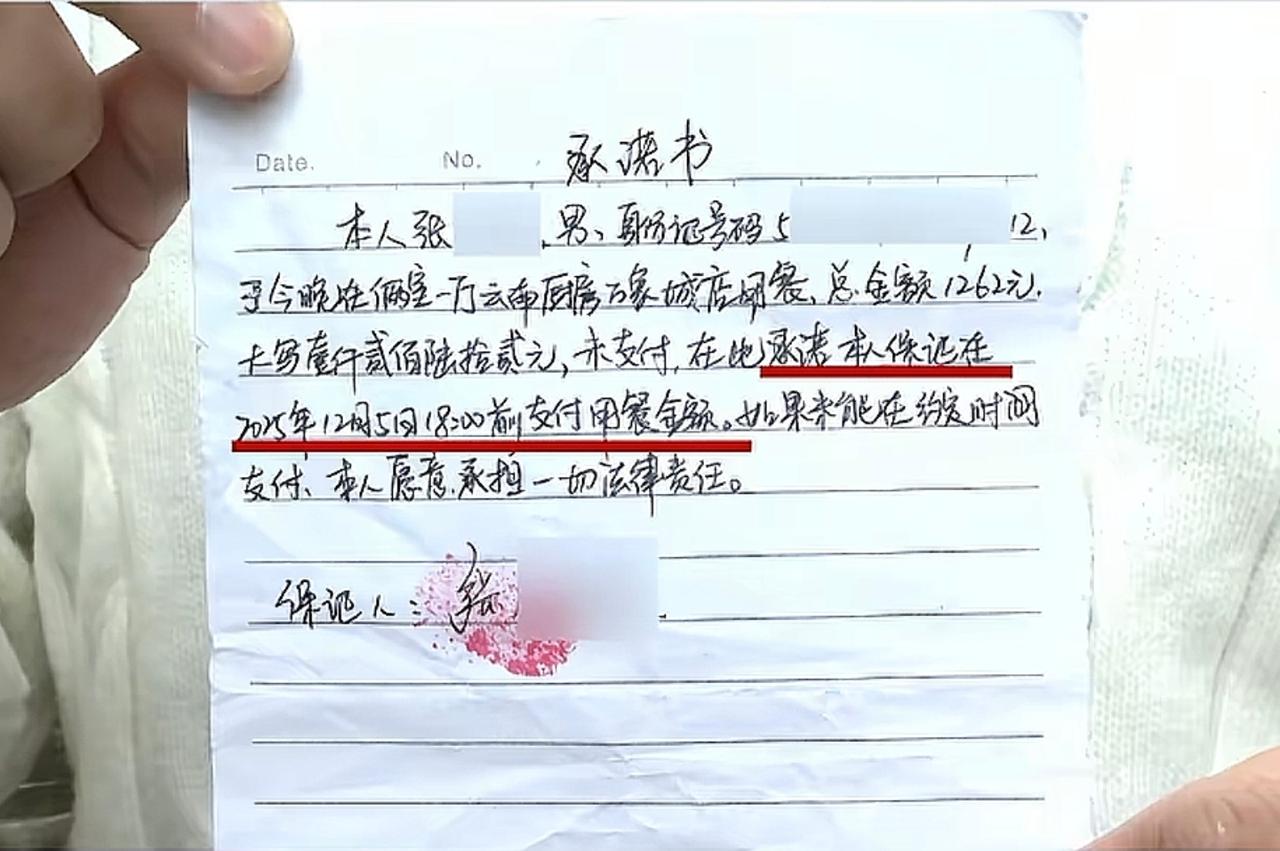 Date. No. 承诺书
本人张 ,男、身份证号码5 12,
于今晚在俩室一厅云南厨房万象城店用餐、总金额1262元.
大写壹仟贰佰陆拾贰元,未支付,在此承诺本人保证在
2025年12月5日18:00前支付用餐金额。如果未能在约定时间
支付、本人愿意承担一切法律责任。
保证人:张